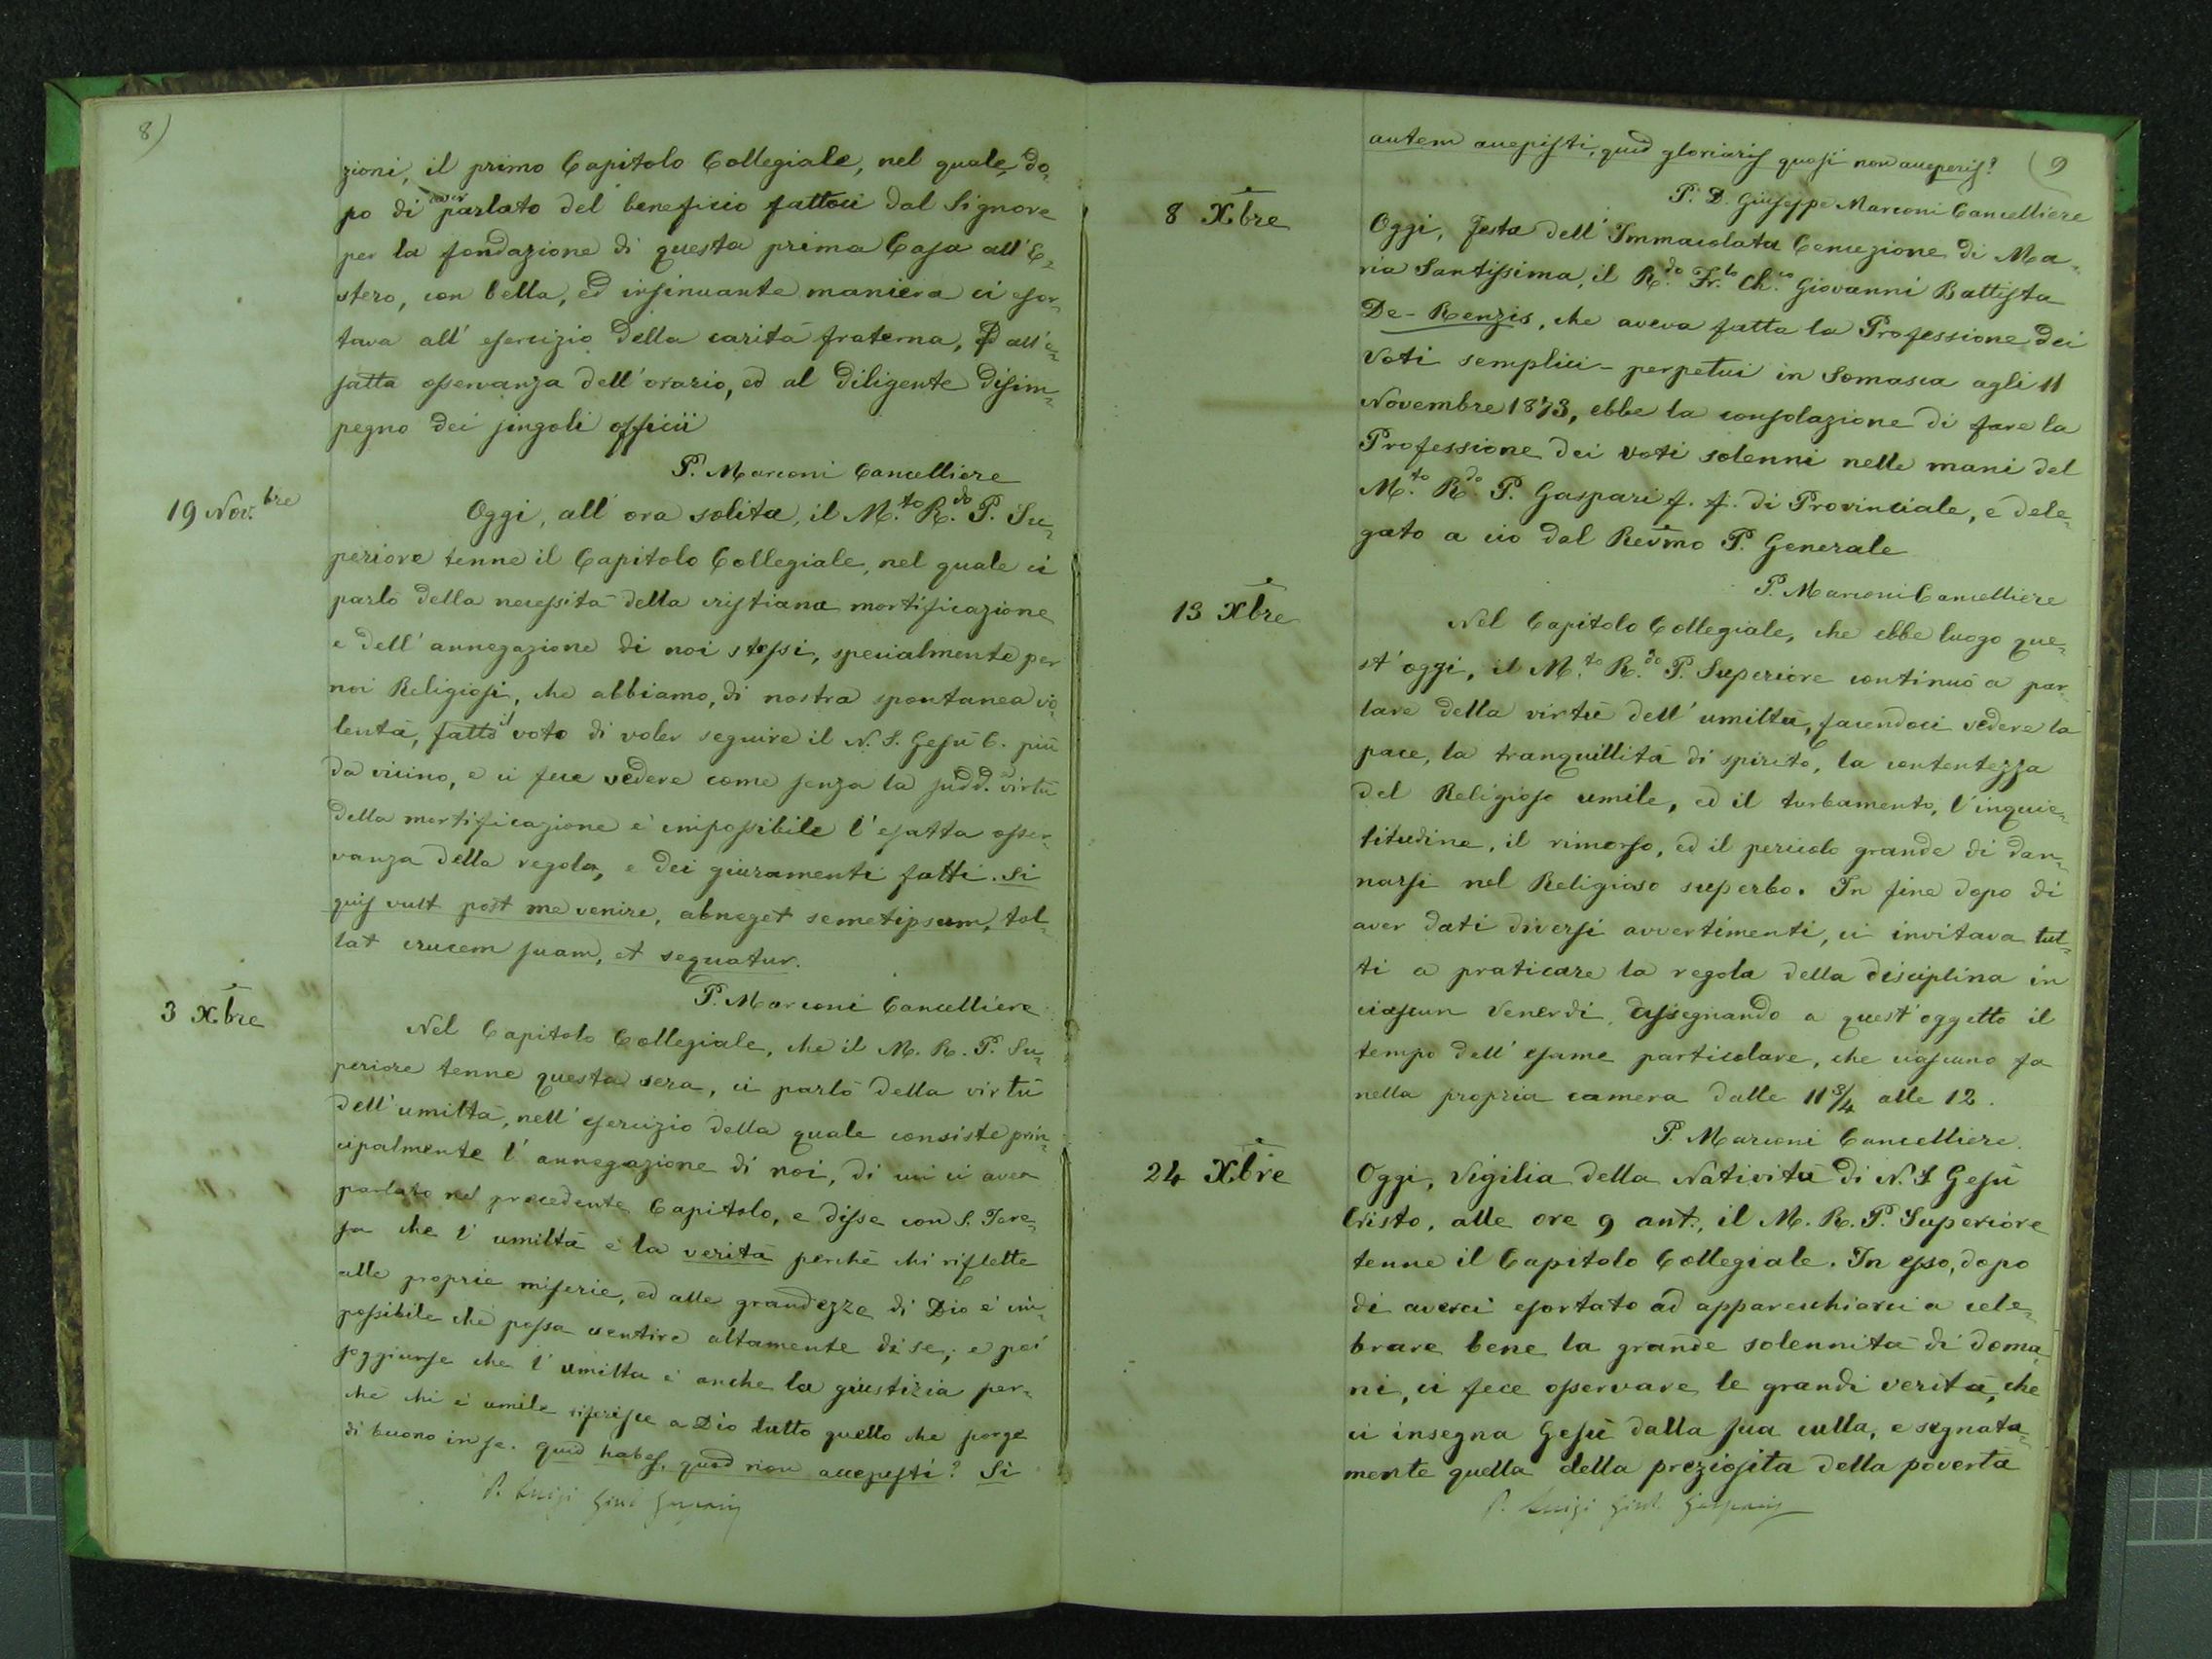 8)
zioni, il primo Capitolo Collegiale, nel quale, do,
po di aver parlato del beneficio fattoci dal Signore
per la fondazione di questa prima Casa all'E,
stero, con bella, ed insinuante maniera ci esor,
tava all' esercizio della carità fraterna, all'e,
satta osservanza dell'orario, ed al diligente disim,
pegno dei singoli officii
P. Marconi Cancelliere
19 Nov.bre
Oggi, all' ora solita, il M.to R.do P. Su,
periore tenne il Capitolo Collegiale, nel quale ci
parlò della necessità della cristiana mortificazione
e dell' annegazione di noi stessi, specialmente per
noi Religiosi, che abbiamo, di nostra spontanea vo,
lontà, fatto il voto di voler seguire il N. S. Gesù C. più
da vicino, e ci fece vedere come senza la sudd.a virtù
della mortificazione è impossibile l' esatta osser,
vanza della regola, e dei giuramenti fatti. Si
quis vult post me venire, abneget semetipsum, tol,
lat crucem suam, et sequatur.
P. Marconi Cancelliere
3 Xbre
Nel Capitolo Collegiale, che il M. R. P. Su,
periore tenne questa sera, ci parlò della virtù
dell' umiltà, nell' esercizio della quale consiste prin,
cipalmente l' annegazione di noi, di cui ci avea
parlato nel precedente Capitolo, e disse con S. Tere,
sa che l' umiltà è la verità perchè chi riflette
alle proprie miserie, ed alle grandezze di Dio è im,
possibile che possa sentire altamente di se; e poi
soggiunse che l' umiltà è anche la giustizia per,
chè chi è umile riferisce a Dio tutto quello che scorge
di buono in se. Quid habes, quod non accepisti? Si
P. Luigi Girol. Gaspari
9
autem accepisti, quid gloriaris quasi non acceperis?
P. D. Giuseppe Marconi Cancelliere
8 Xbre
Oggi, festa dell' Immacolata Concezione di Ma,
ria Santissima, il R.do Fr.llo Ch.co Giovanni Battista
De-Renzis, che aveva fatta la Professione dei
Voti semplici-perpetui in Somasca agli 11
Novembre 1873, ebbe la consolazione di fare la
Professione dei voti solenni nelle mani del
M.to R.do P. Gaspari f. f. di Provinciale, e dele,
gato a ciò dal Revmo P. Generale
P. Marconi Cancelliere
13 Xbre
Nel Capitolo Collegiale, che ebbe luogo que,
st' oggi, il M.to R.do P. Superiore continuò a par,
lare della virtù dell' umiltà, facendoci vedere la
pace, la tranquillità di spirito, la contentezza
del Religioso umile, ed il turbamento, l' inquie,
titudine, il rimorso, ed il pericolo grande di dan,
narsi nel Religioso superbo. In fine dopo di
aver dati diversi avvertimenti, ci invitava tut,
ti a praticare la regola della disciplina in
ciascun Venerdi, assegnando a quest' oggetto il
tempo dell' esame particolare, che ciascuno fa
nella propria camera dalle 11 3/4 alle 12.
P. Marconi Cancelliere.
24 Xbre
Oggi, Vigilia della Natività di N. S. Gesù
Cristo, alle ore 9 ant., il M. R. P. Superiore
tenne il Capitolo Collegiale. In esso, dopo
di averci esortato ad apparecchiarci a cele,
brare bene la grande solennità di doma,
ni, ci fece osservare le grandi verità, che
ci insegna Gesù dalla sua culla, e segnata,
mente quella della preziosità della povertà
P. Luigi Girol. Gaspari